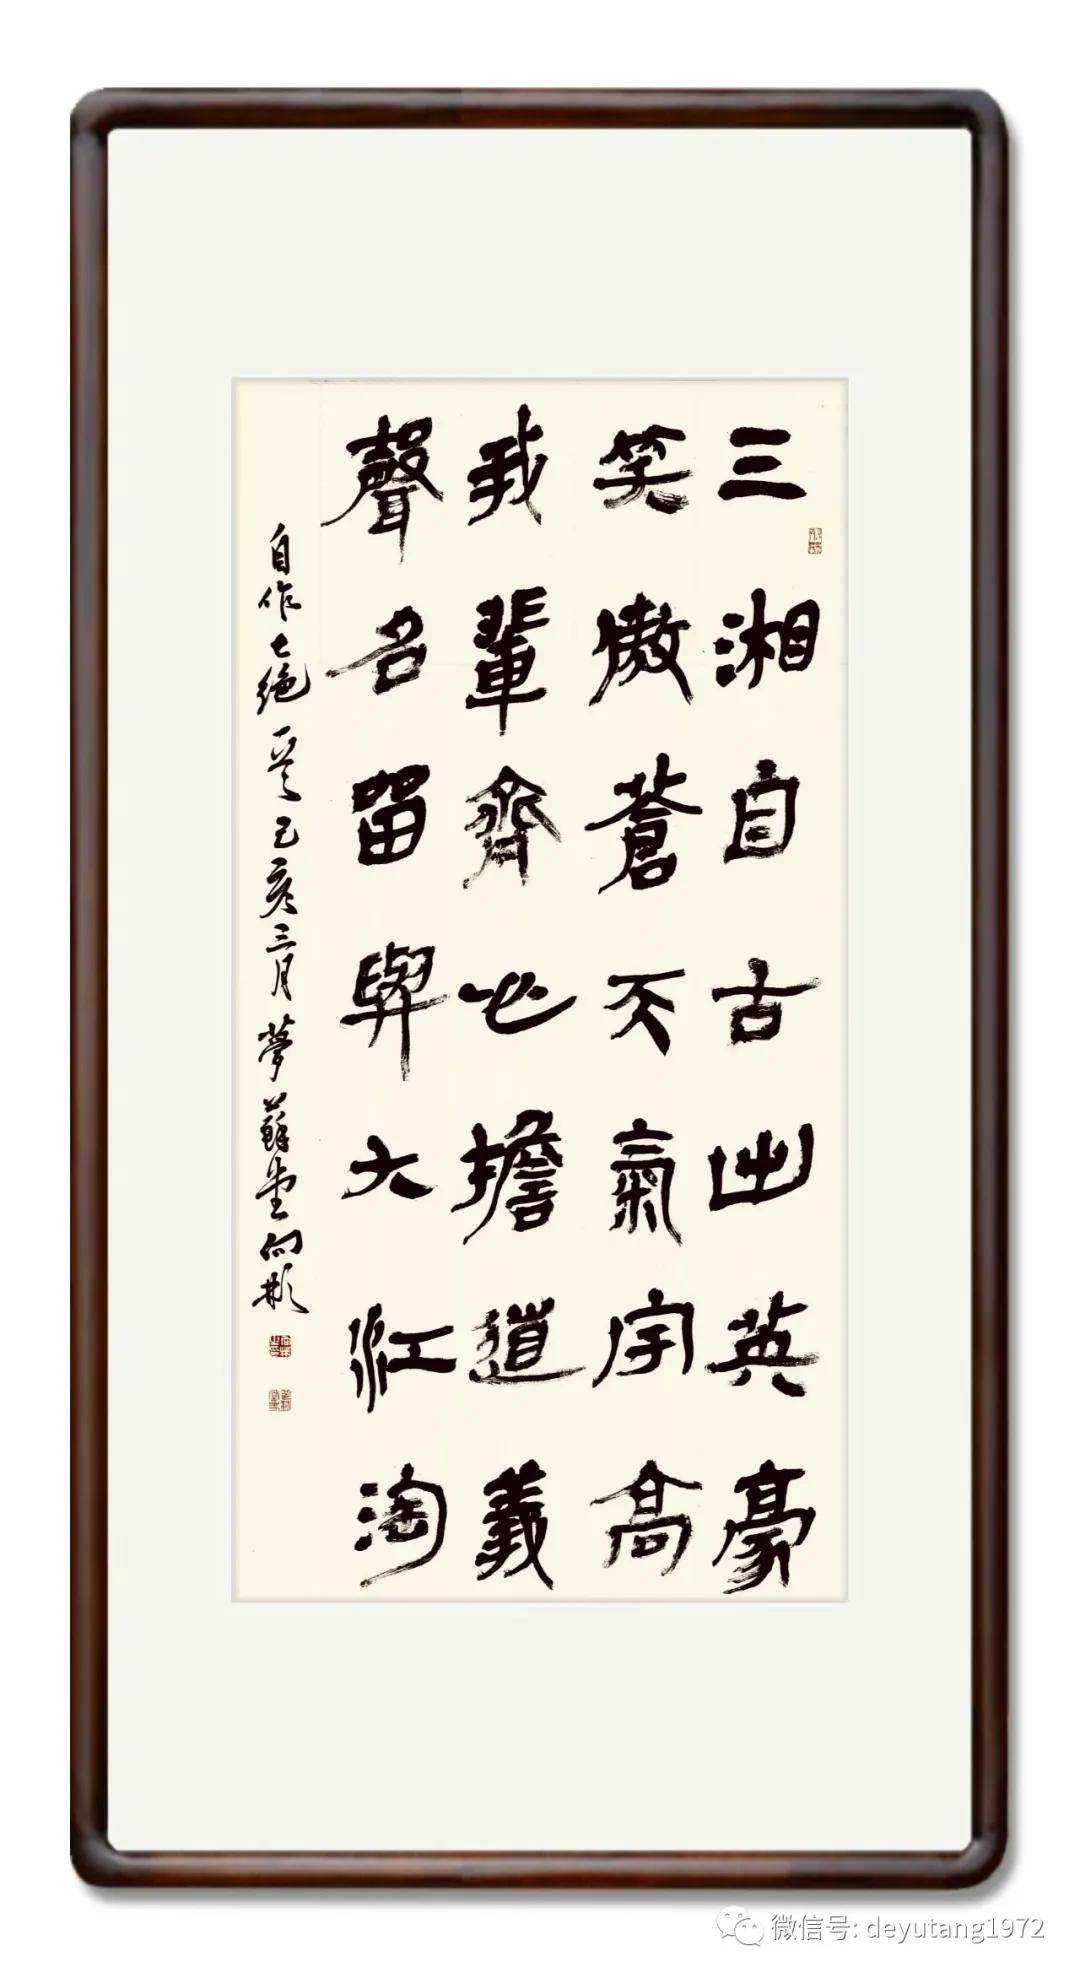 三湘自古出英豪
笑傲蒼天氣宇高
我輩齊心擔道義
聲名留與大江淘
自作七絶一首己亥三月夢蘇堂向彬
微信号: deyutang1972